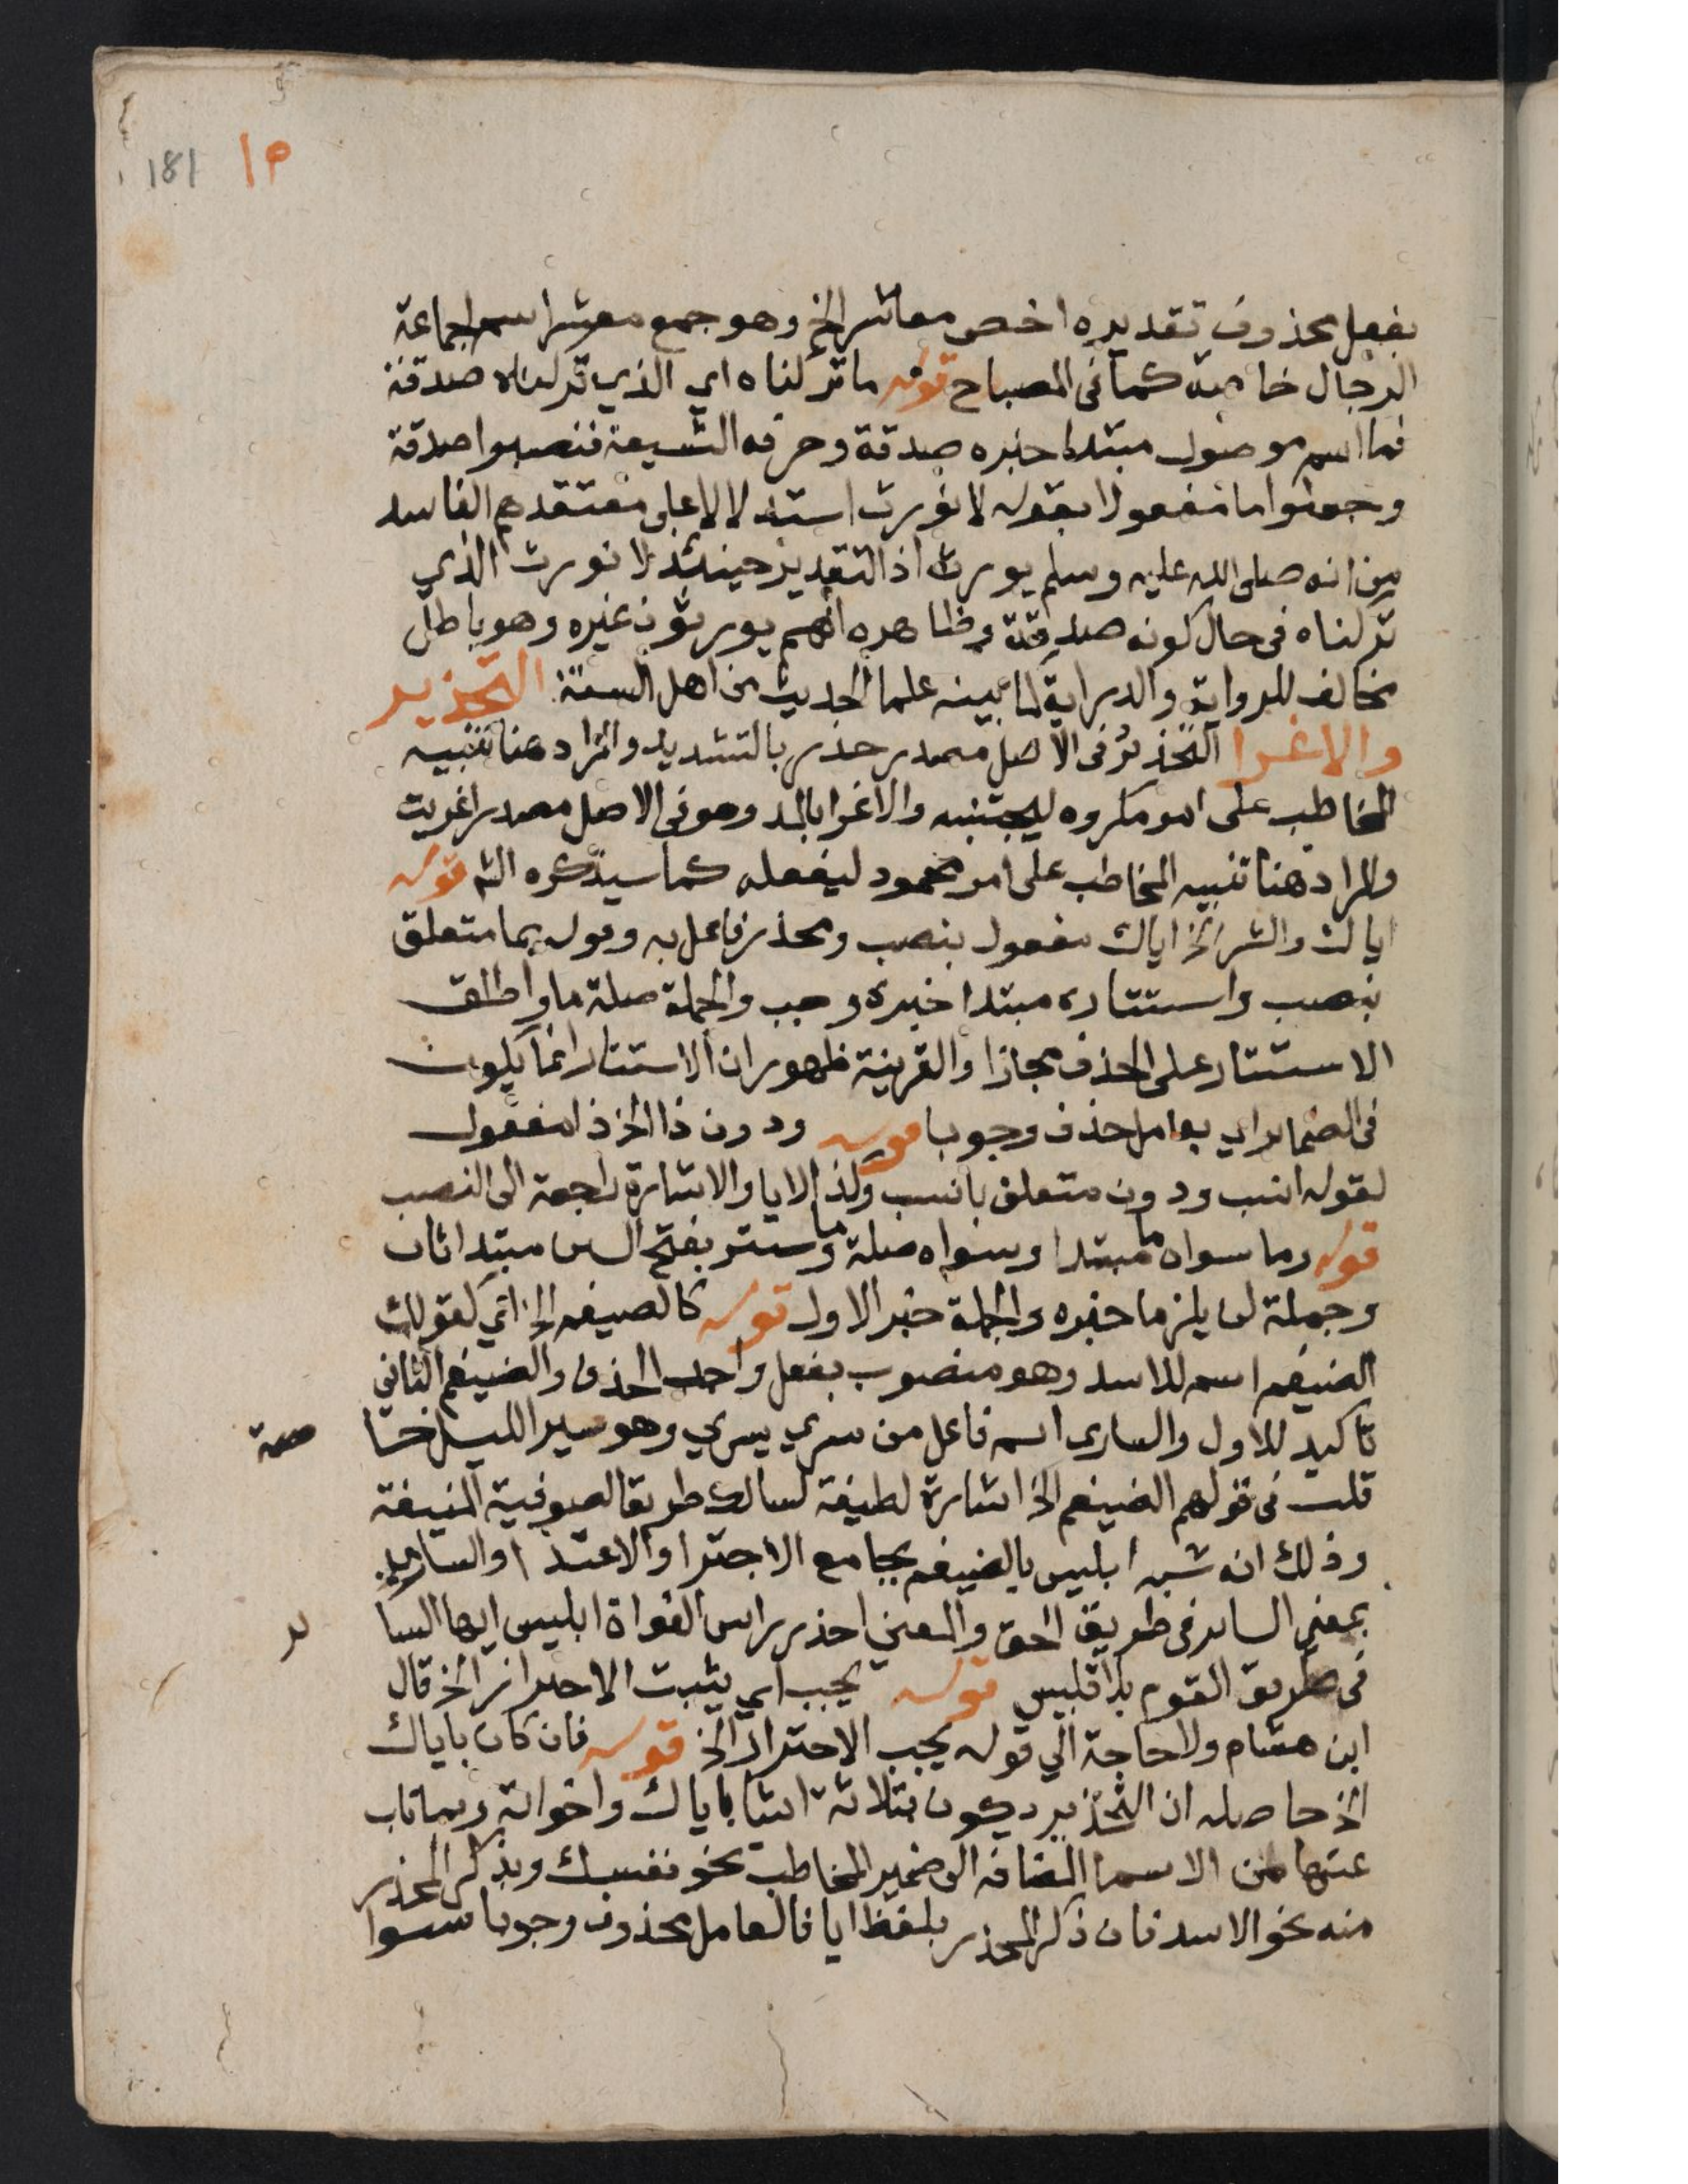 181 م١
بفعل محذوف تقديره اخص معاشر الخ وهو جمع معشر اسم لجماعة
الرجال خاصة كما فى المصباح قوله ما تركناه اي الذي تركناه صدقة
فما اسم موصول مبتدا خبره صدقة وحرفه الشيعة فنصبوا صدقة
وجعلوا ما مفعولا بقوله لا نورث استدلالا على معتقدهم الفاسد
من انه صلى الله عليه وسلم يورث اذ التقدير حينئذ لا نورث الذي
تركناه فى حال كونه صدقة وظاهره انهم يورثون غيره وهو باطل
مخالف للرواية والدراية لما بينه علما الحديث من اهل السنة التحذير
والاغرا التحذير فى الاصل مصدر حذر بالتشديد والمراد هنا تنبيه
المخاطب على امر مكروه ليجتنبه والاغرا بالمد وهو فى الاصل مصدر اغريت
والمراد هنا تنبيه المخاطب على امر محمود ليفعله كما سيذكره الش قوله
اياك والشر الخ اياك مفعول بنصب ومحذر فاعل به وقوله بما متعلق
بنصب واستتاره مبتدا خبره وجب والجملة صلة ما واطلق
الاستتار على الحذف مجازا والقرينة ظهور ان الاستتار انما يكون
فى الضماير اي بعامل حذف وجوبا قوله ودون ذا الخ ذا مفعول
لقوله انسب ودون متعلق بانسب ولذا لايا والاشارة راجعة الى النصب
قوله وما سواه ما مبتدا وسواه صلة ما وستر بفتح السن مبتدا ثان
وجملة لن يلزما خبره والجملة خبر الاول قوله كالضيغم الخ اي كقولك
الضيغم اسم للاسد وهو منصوب بفعل واجب الحذف والضيغم الثاني
تاكيد للاول والسارى اسم فاعل من سري يسري وهو سير الليل خا
صة
قلت فى قولهم الضيغم الخ اشارة لطيفة لسالك طريق الصوفية المنيفة
وذلك انه شبه ابليس بالضيغم بجامع الاجترا والاعتدا والساري
بمعنى الساير فى طريق الحق والمعني احذر راس الغواة ابليس ايها السا
ير
فى طريق القوم بلا تلبيس قوله يجب اي يثبت الاحتراز الخ قال
ابن هشام ولا حاجة الي قوله يجب الاحتراز الخ قوله فان كان باياك
الخ حاصله ان التحذير يكون بثلاثة اشيا باياك واخواته وبما ناب
عنها من الاسما المضافه الى ضمير المخاطب نحو نفسك وبذكر المحذر
منه نحو الاسد فان ذكر المحذر بلفظ ايا فالعامل محذوف وجوبا سوا